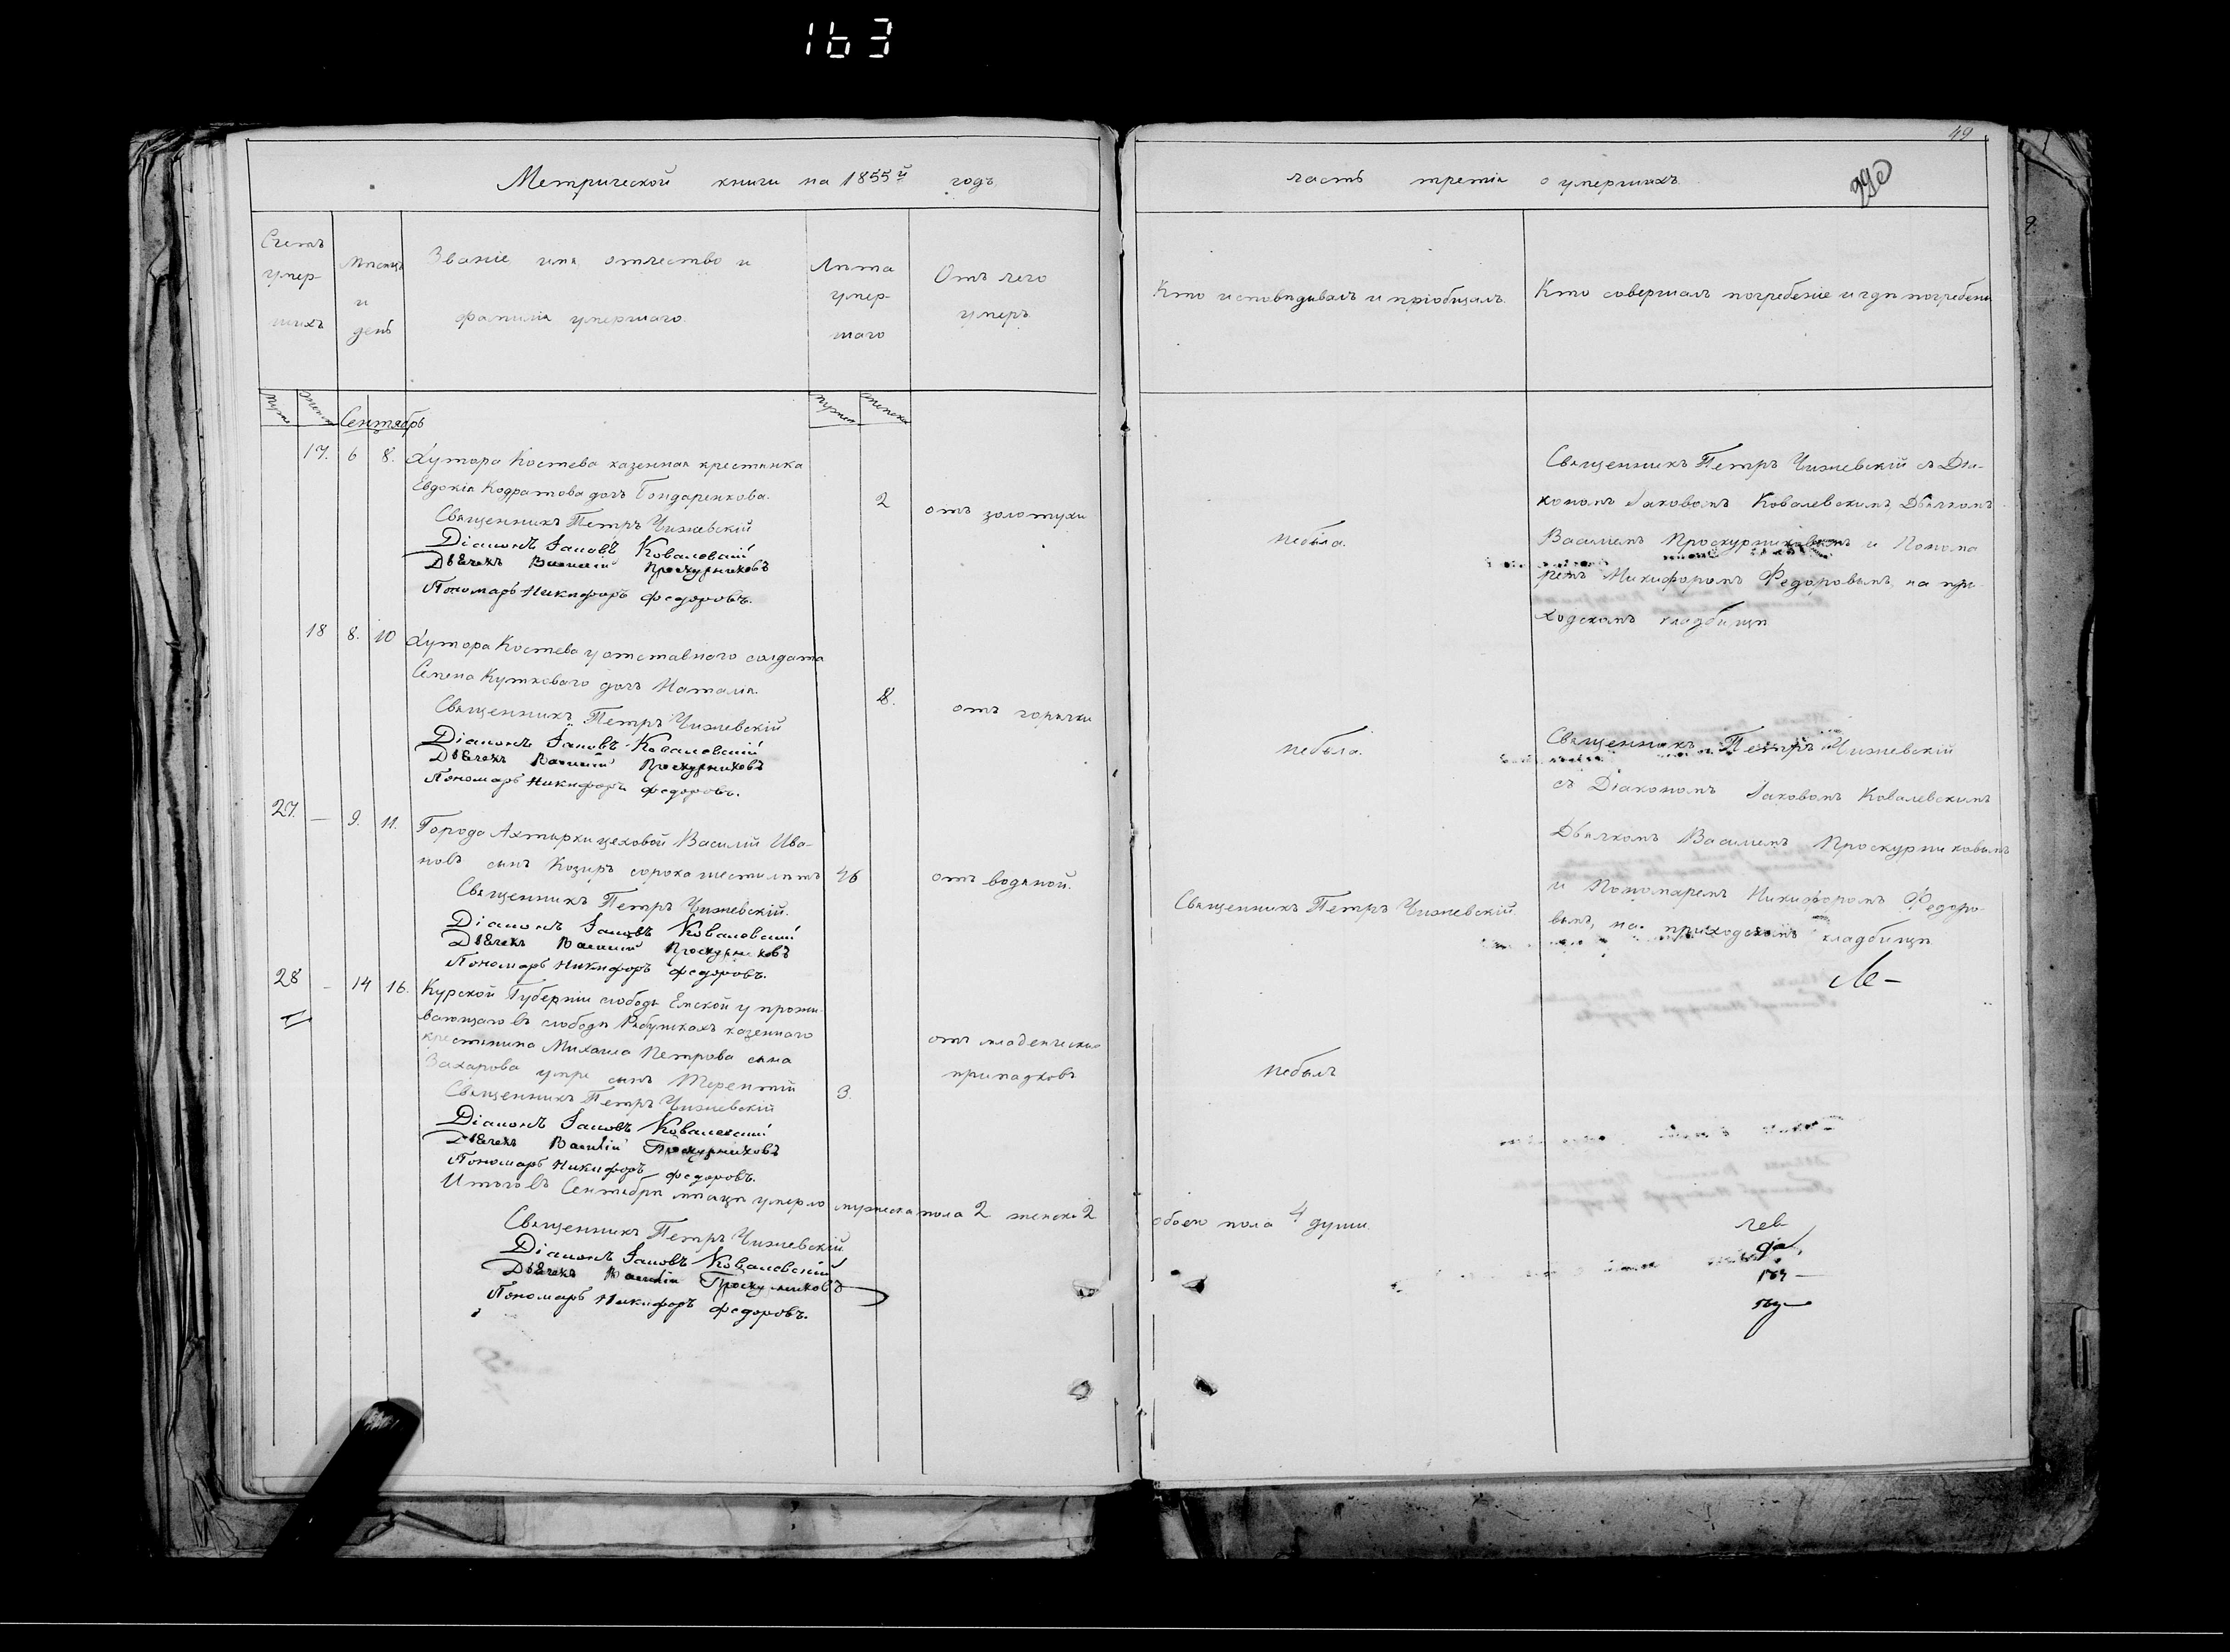 163
49
Метрической книги на 1855й годъ
часть третія о умершихъ.
290
Счетъ умер- шихъ
Мѣсяцъ и день
Званіе имя отчество и
фамилія умершаго.
Лѣта умер- шаго
Отъ чего умеръ
Кто исповѣдывалъ и пріобщалъ.
Кто совершалъ погребеніе и гдѣ погребены
Сентябрь
17. 6 8. Хутора Костева казенная крестянка
Евдокія Кодратова дочь Бондаренкова.
2
отъ золотухи
Священникъ Петръ Чижевскій
Діаконъ Іаковъ Ковалевскій
Дьячекъ Василій Проскурниковъ
Пономарь Никифоръ Федоровъ.
небыла.
Священникъ Петръ Чижевскій съ Діа-
кономъ Іаковомъ Ковалевскимъ, Дьячкомъ
Василемъ Проскурниковымъ и Понома
ремъ Никифоромъ Федоровымъ, на при-
ходскомъ кладбищѣ
18 8. 10 Хутора Костева у отставного солдата
Семена Куткового дочь Наталія.
8.
отъ горячки
Священникъ Петръ Чижевскій
Діаконъ Іаковъ Ковалевскій
Дьячекъ Василій Проскурниковъ
Пономарь Никифоръ Федоровъ.
небыла.
Священникъ Петръ Чижевскій
съ Діакономъ Іаковомъ Ковалевскимъ
Дьячкомъ Василемъ Проскурниковымъ
и Пономаремъ Никифоромъ Федоро-
вымъ, на приходскомъ кладбищѣ
27. — 9. 11. Города Ахтырки цеховой Василій Ива-
новъ сынъ Козиръ сорока шести лѣтъ
46
отъ водяной.
Священникъ Петръ Чижевскій.
Діаконъ Іаковъ Ковалевскій
Дьячекъ Василій Проскурниковъ
Пономарь Никифоръ Федоровъ.
Священникъ Петръ Чижевскій.
28 - 14 16. Курской Губерніи слободы у прожи-
вающаго въ слободѣ Рябушкахъ казенного
крестянина Михаила Петрова сына
Захарова умре сынъ Терентій
3.
отъ младенческих
припадковъ
Священникъ Петръ Чижевскій
Діаконъ Іаковъ Ковалевскій
Дьячекъ Василій Проскурниковъ
Пономарь Никифоръ Федоровъ.
небылъ
Итого въ Сентябрѣ мѣсяцѣ умерло мужеска пола 2 женска 2 обоего пола 4 души.
Священникъ Петръ Чижевскій
Діаконъ Іаковъ Ковалевскій
Дьячекъ Василій Проскурниковъ
Пономарь Никифоръ Федоровъ.